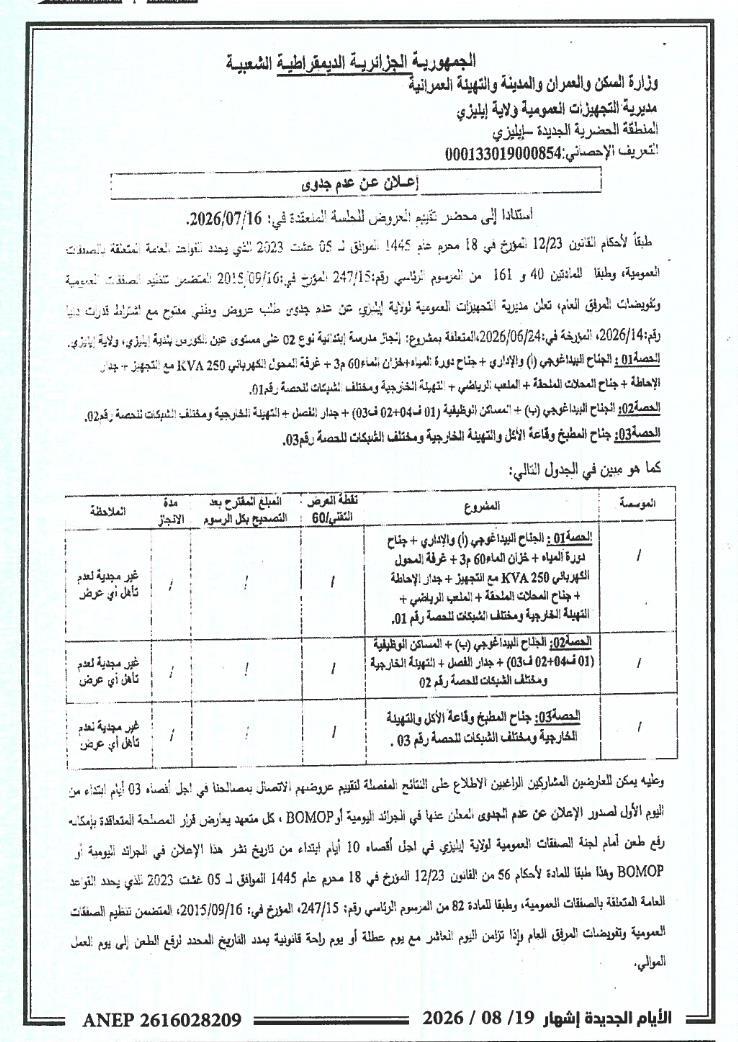 الجمهورية الجزائرية الديمقراطية الشعبية
وزارة السكن والعمران والمدينة والتهيئة العمرانية
مديرية التجهيزات العمومية ولاية إيليزي
المنطقة الحضرية الجديدة –إيليزي
التعريف الإحصائي:000133019000854
إعلان عن عدم جدوى
استنادا إلى محضر تقييم العروض للجلسة المنعقدة في: 2026/07/16.
طبقا لأحكام القانون 12/23 المؤرخ في 18 محرم عام 1445 الموافق لـ 05 غشت 2023 الذي يحدد القواعد العامة المتعلقة بالصفقات
العمومية، وطبقا للمادتين 40 و 161 من المرسوم الرئاسي رقم:247/15 المؤرخ في:2015/09/16 المتضمن تنظيم الصفقات العمومية
وتفويضات المرفق العام، تعلن مديرية التجهيزات العمومية لولاية إيليزي عن عدم جدوى طلب عروض وطني مفتوح مع اشتراط قدرات دنيا
رقم:2026/14، المؤرخة في:2026/06/24،المتعلقة بمشروع: إنجاز مدرسة إبتدائية نوع 02 على مستوى عين الكورس بلدية إيليزي، ولاية إيليزي.
الحصة01: الجناح البيداغوجي (أ) والإداري + جناح دورة المياه+خزان الماء60 م3 + غرفة المحول الكهربائي KVA 250 مع التجهيز + جدار
الإحاطة + جناح المحلات الملحقة + الملعب الرياضي + التهيئة الخارجية ومختلف الشبكات للحصة رقم01.
الحصة02: الجناح البيداغوجي (ب) + المساكن الوظيفية (01 ف04+02 ف03) + جدار الفصل + التهيئة الخارجية ومختلف الشبكات للحصة رقم02.
الحصة03: جناح المطبخ وقاعة الأكل والتهيئة الخارجية ومختلف الشبكات للحصة رقم03.
كما هو مبين في الجدول التالي:
الموسسة المشروع نقطة العرض التقني/60 المبلغ المقترح بعد التصحيح بكل الرسوم مدة الانجاز الملاحظة
/ الحصة01: الجناح البيداغوجي (أ) والإداري + جناح
دورة المياه + خزان الماء60 م3 + غرفة المحول
الكهربائي KVA 250 مع التجهيز + جدار الإحاطة
+ جناح المحلات الملحقة + الملعب الرياضي +
التهيئة الخارجية ومختلف الشبكات للحصة رقم 01.
/ / / غير مجدية لعدم
تأهل أي عرض
/ الحصة02: الجناح البيداغوجي (ب) + المساكن الوظيفية
(01 ف04+02 ف03) + جدار الفصل + التهيئة الخارجية
ومختلف الشبكات للحصة رقم 02
/ / / غير مجدية لعدم
تأهل أي عرض
/ الحصة03: جناح المطبخ وقاعة الأكل والتهيئة
الخارجية ومختلف الشبكات للحصة رقم 03 .
/ / / غير مجدية لعدم
تأهل أي عرض
وعليه يمكن للعارضين المشاركين الراغبين الاطلاع على النتائج المفصلة لتقييم عروضهم الاتصال بمصالحنا في اجل أقصاه 03 أيام ابتداء من
اليوم الأول لصدور الإعلان عن عدم الجدوى المعلن عنها في الجرائد اليومية أو BOMOP ، كل متعهد يعارض قرار المصلحة المتعاقدة بإمكانه
رفع طعن أمام لجنة الصفقات العمومية لولاية إيليزي في اجل أقصاه 10 أيام ابتداء من تاريخ نشر هذا الإعلان في الجرائد اليومية أو
BOMOP وهذا طبقا للمادة لأحكام 56 من القانون 12/23 المؤرخ في 18 محرم عام 1445 الموافق لـ 05 غشت 2023 الذي يحدد القواعد
العامة المتعلقة بالصفقات العمومية، وطبقا للمادة 82 من المرسوم الرئاسي رقم: 247/15، المؤرخ في: 2015/09/16، المتضمن تنظيم الصفقات
العمومية وتفويضات المرفق العام وإذا تزامن اليوم العاشر مع يوم عطلة أو يوم راحة قانونية يمدد التاريخ المحدد لرفع الطعن إلى يوم العمل
الموالي.
الأيام الجديدة إشهار 19/ 08 / 2026
ANEP 2616028209